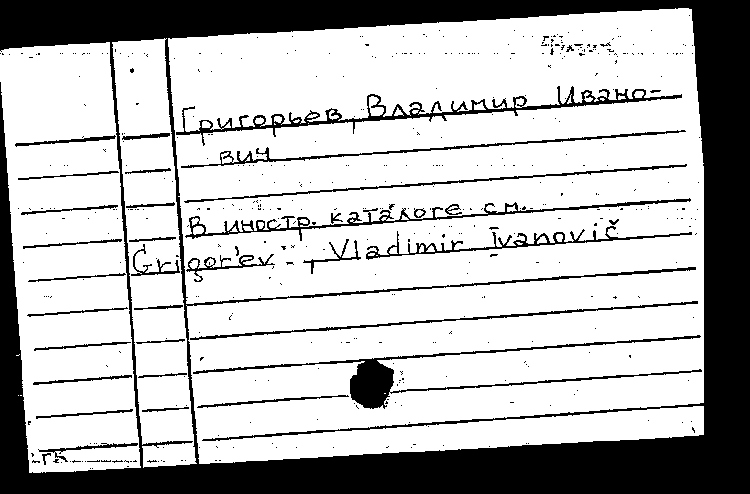 Григорьев, Владимир Ивано-
вич
В иностр. каталоге см.
Grigor'ev, Vladimir Ivanovič
ГК